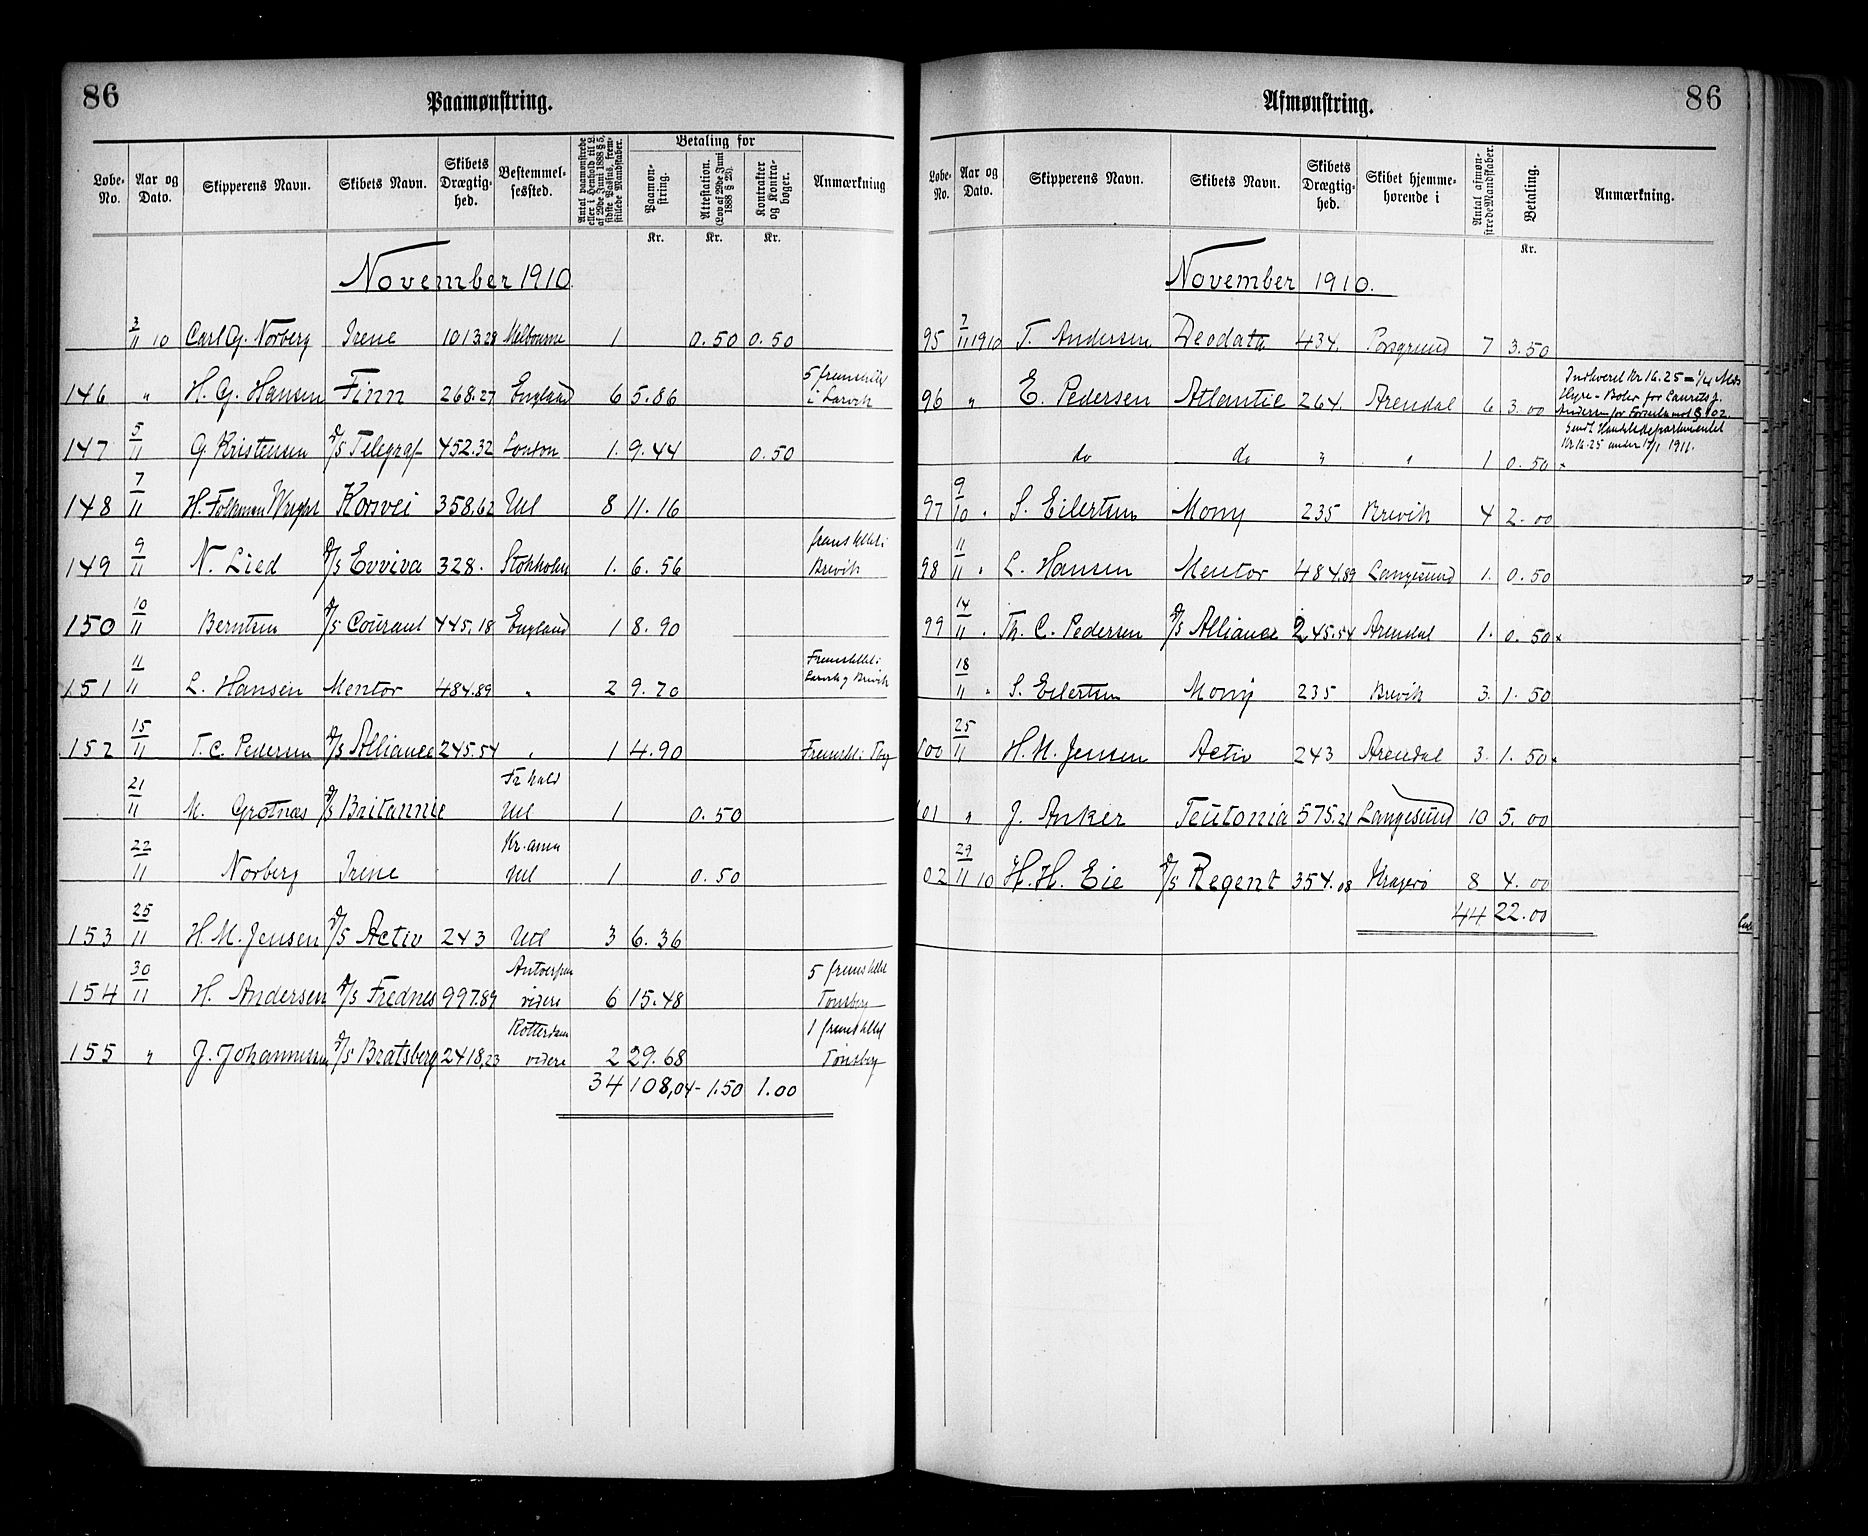 86
Paamønstring.
Løbe-No. | Aar og Dato. | Skipperens Navn. | Skibets Navn. | Skibets Drægtig-hed. | Bestemmel-sessted. | Antal paamønstrede eller i Henhold til L. af 29de Juni 1888 § 5, sidste Passus, frem-stillede Mandskaber. | Betaling for | Paamøn-string. | Attestation. (Lov af 29de Juni 1888 § 23). | Kontrakter og Kontra-bøger. | Anmærkning
Kr. | Kr. | Kr.
November 1910.
3/11 10 | Carl G. Norberg | Irene | 1013.28 | Melbourne | 1 | 0.50 | 0.50
146 | " | H. G. Hansen | Finn | 268.27 | England | 6 | 5.86 | 5 fremstillet i Larvik
147 | 5/11 | G. Kristensen | D/S Telegraf | 452.32 | London | 1. | 9.44 | 0.50
148 | 7/11 | H. Folkman Wright | Korsvei | 358,62 | Utl | 8 | 11.16
149 | 9/11 | N. Lied | D/S Evviva | 328. | Stokholm | 1. | 6.56 | fremstillet i Brevik
150 | 10/11 | Berntsen | D/S Courant | 445,18 | England | 1 | 8.90
151 | 11/11 | L. Hansen | Mentor | 484.89 | " | 2 | 9.70 | Fremstillet i Larvik og Brevik
152 | 15/11 | T. C. Pedersen | D/S Alliance | 245.54 | " | 1 | 4.90 | Fremst. i Tbg
21/11 | M. Grotnæs | D/S Britannic | Fr.hald Utl | 1 | 0.50
22/11 | Norberg | Irene | Kr.ania Utl | 1 | 0.50
153 | 25/11 | H. M. Jensen | D/S Activ | 243 | Utl | 3 | 6.36
154 | 30/11 | H. Andersen | D/S Frednes | 997.89 | Antwerpen videre | 6 | 15.48 | 5 fremstillet Tønsberg
155 | " | J. Johannessen | D/S Bratsberg | 2418,23 | Rotterdam videre | 2 | 29.68 | 1 fremstillet Tønsberg
34 | 108,04 - | 1.50 | 1.00
86
Afmønstring.
Løbe-No. | Aar og Dato. | Skipperens Navn. | Skibets Navn. | Skibets Drægtig-hed. | Skibet hjemme-hørende i | Antal afmøn-strede Mandskaber. | Betaling. | Anmærkning.
Kr.
November 1910.
95 | 7/11 1910 | T. Andersen | Deodata | 434. | Porsgrund | 7 | 3.50
96 | " | E. Pedersen | Atlantic | 264. | Arendal | 6 | 3.00 | Indleveret Kr 16.25 = 1/4 Mds Hyre - Bøter for Laurits J. Andersen for Forseelse mod § 102
do | do | " | " | 1 | 0.50 | Sendt Handelsdepartementet Kr. 16.25 under 17/1 1911.
97 | 9/10 " | S. Eilertsen | Mony | 235 | Brevik | 4 | 2.00
98 | 11/11 " | L. Hansen | Mentor | 484.89 | Langesund | 1. | 0.50
99 | 14/11 " | Th. C. Pedersen | D/S Alliance | 245.54 | Arendal | 1. | 0.50 x
18/11 " | S. Eilertsen | Mony | 235 | Brevik | 3. | 1.50
100 | 25/11 | H. M. Jensen | Activ | 243 | Arendal | 3. | 1.50 x
101 | " | J. Anker | Teutonia | 575.21 | Langesund | 10 | 5.00
02 | 29/11 10 | H. H. Eie | D/S Regent | 354.08 | Kragerø | 8 | 4.00
44 | 22.00